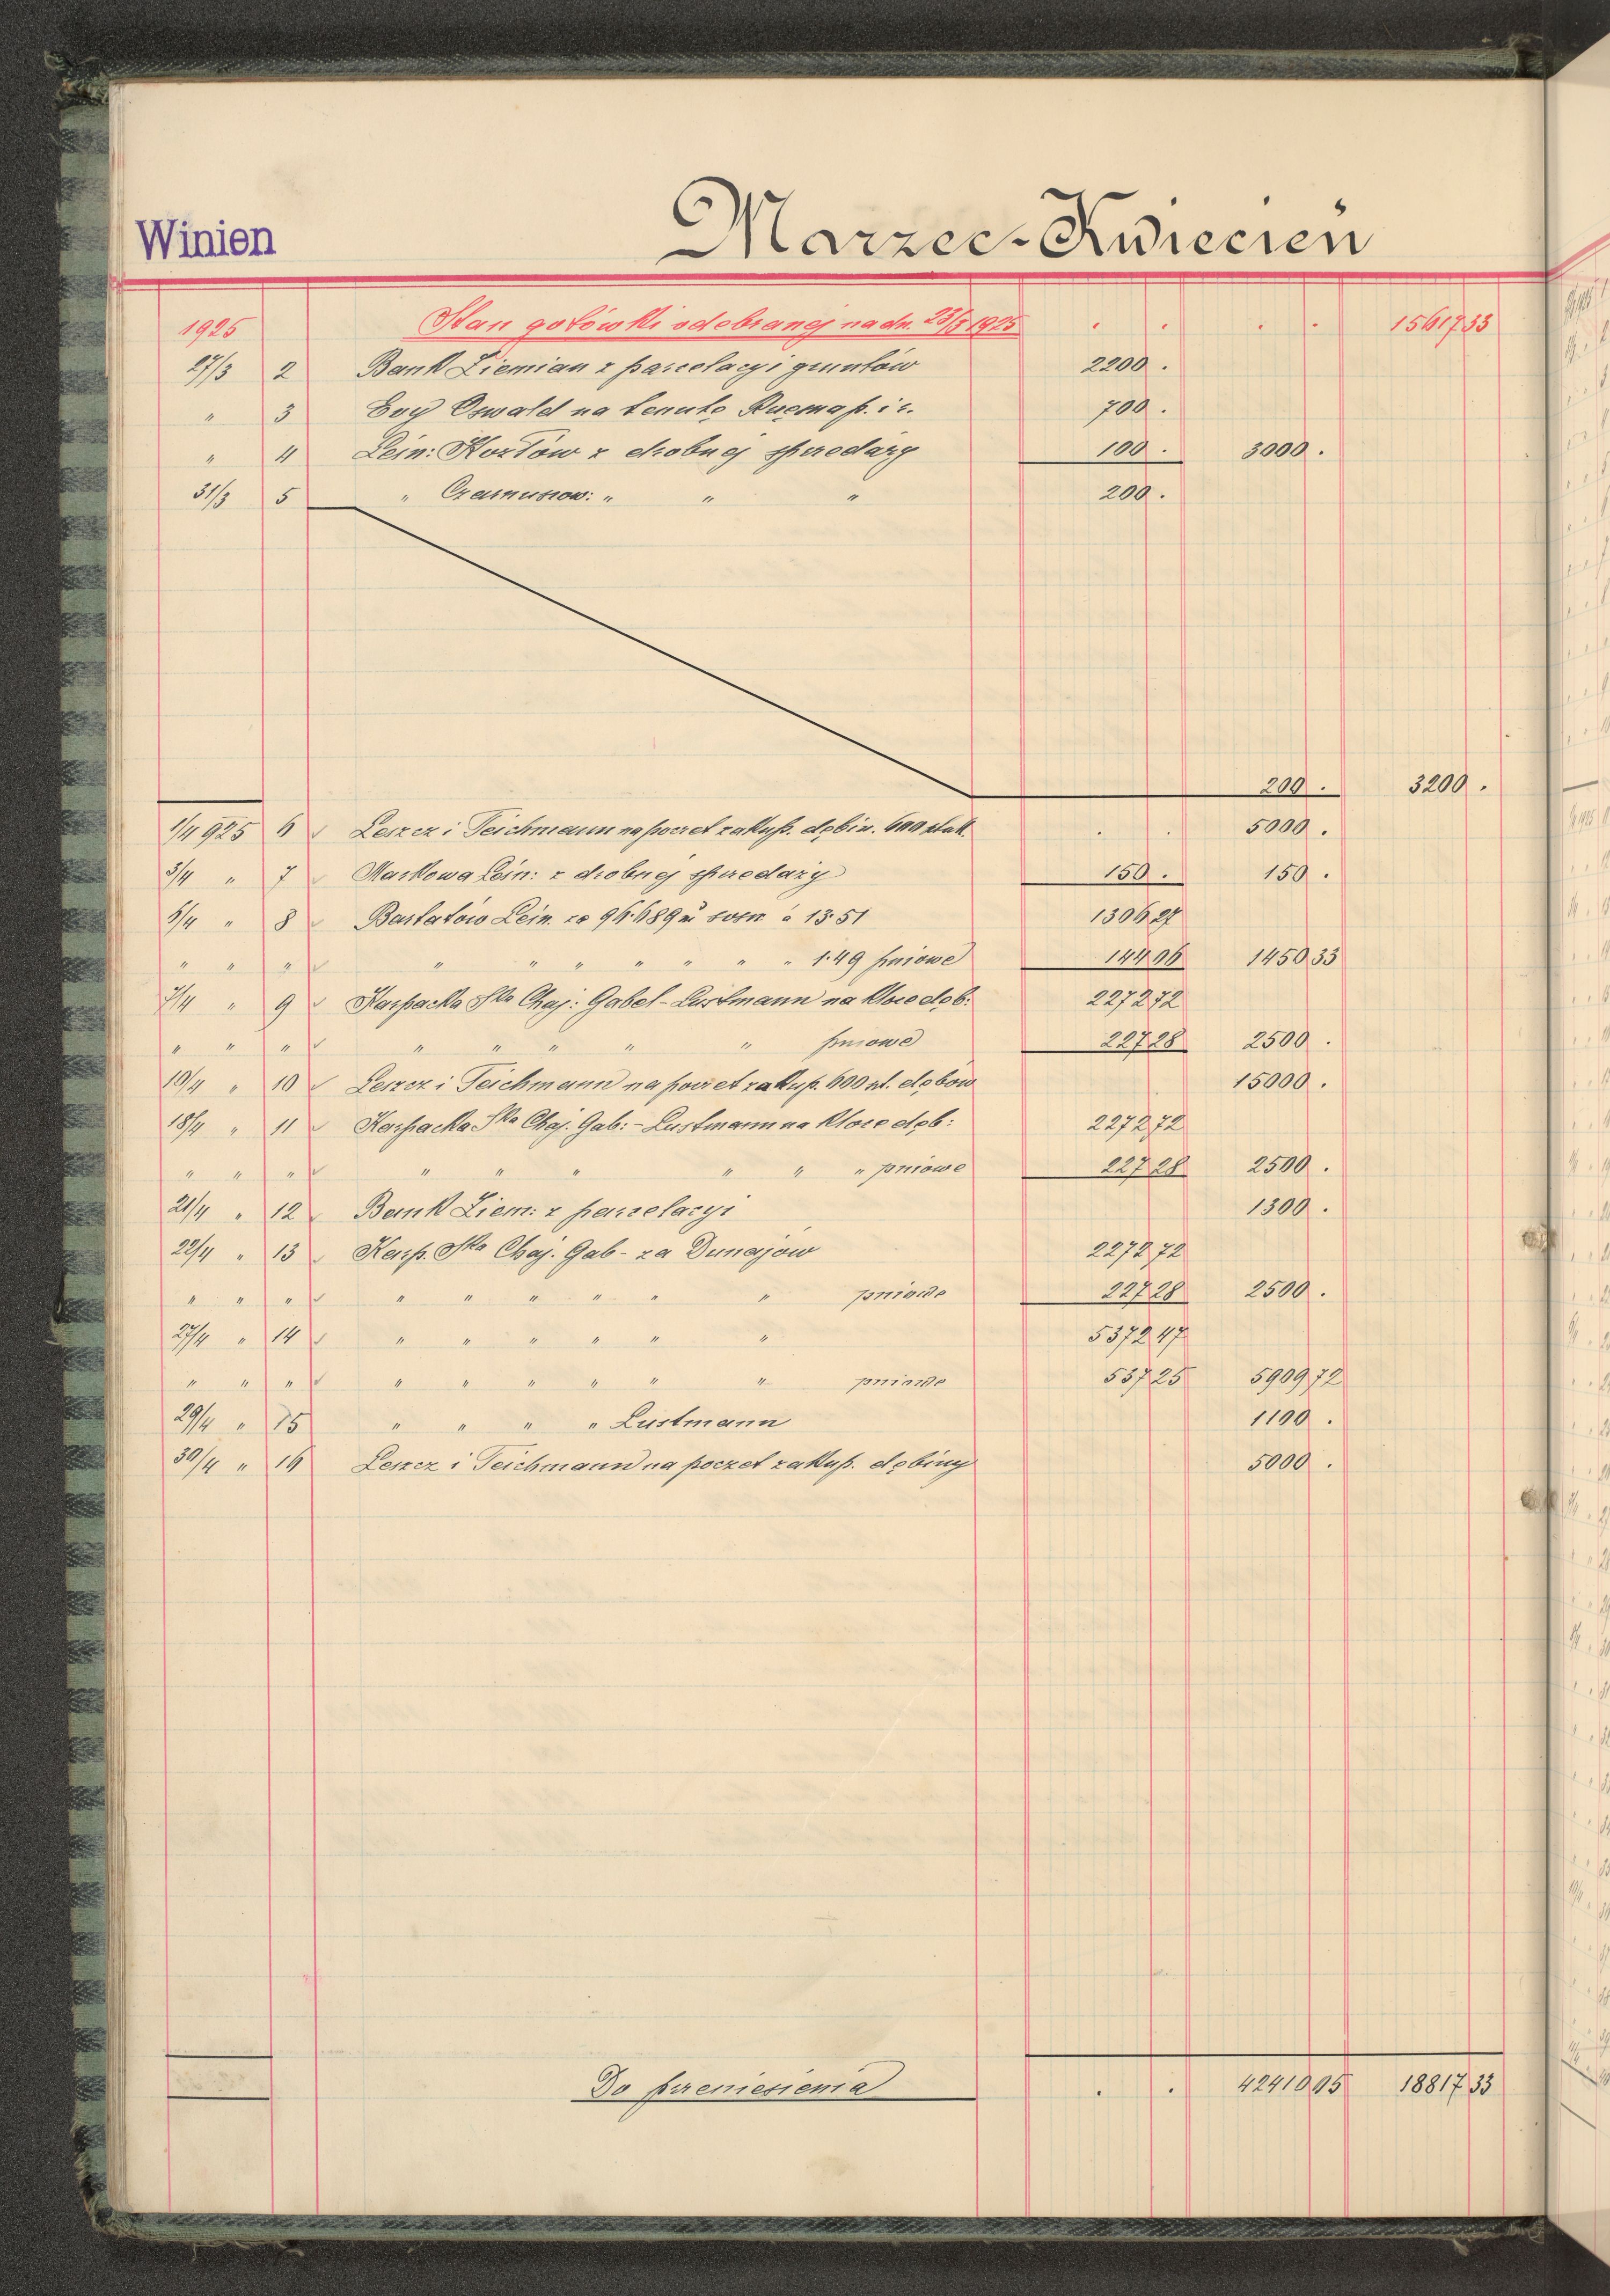 Winien
Marzec-Kwiecień
1925 Stan gotówki odebranej na dn. 23/3 1925 . . . . 15617 33
27/3 2 Bank Ziemian z parcelacyi gruntów 2200 .
" 3 Oswald na tenutę 700 .
" 4 Leśn: Kozłów z drobnej sprzedaży 100 . 3000 .
31/3 5 " " " 200 .
200 . 3200 .
1/4 925 6 Leszcz i Teichmann na poczet zakup. dębin. 600 . . 5000 .
3/4 " 7 Markowa Leśn: z drobnej sprzedaży 150 . 150 .
6/4 " 8 Leśn. za 96.689 à 13.51 1306 27
" " " " " " " " " " 1.49 pniowe 144 06 1450 33
7/4 " 9 Karpacka Ska Chaj: Gabel - Lustmann na kloce dęb: 2272 72
" " " " " " " " pniowe 227 28 2500 .
10/4 " 10 Leszcz i Teichmann na poczet zakup. 600 szt. dębów 15000 .
18/4 " 11 Karpacka Ska Chaj. Gab: - Lustmann na kloce dęb: 2272 72
" " " " " " " " " pniowe 227 28 2500 .
21/4 " 12 Bank Ziem: z parcelacyi 1300 .
22/4 " 13 Karp. Ska Chaj. Gab - za Dunajów 2272 72
" " " " " " " " " pniowe 227 28 2500 .
27/4 " 14 " " " " " " 5372 47
" " " " " " " " " pniowe 537 25 5909 72
29/4 " 15 " " " " Lustmann 1100 .
30/4 " 16 Leszcz i Teichmann na poczet zakup. dębiny 5000 .
Do przeniesienia . . 42410 05 18817 33